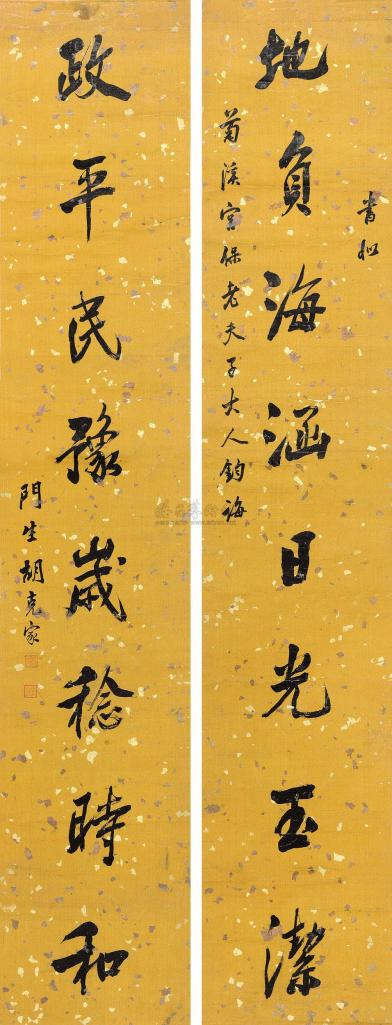 書似
地負海涵日光玉潔
菊溪宮保老夫子大人鈞誨
政平民豫歲稔時和
門生胡克家